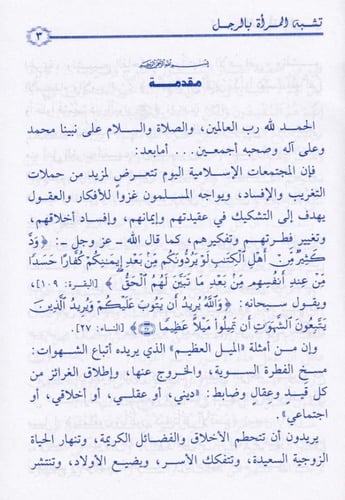 تشبه المرأة بالرجل
٣
بسم الله الرحمن الرحيم
مقدمة
الحمد لله رب العالمين، والصلاة والسلام على نبينا محمد
وعلى آله وصحبه أجمعين... أمابعد:
فإن المجتمعات الإسلامية اليوم تتعرض لمزيد من حملات
التغريب والإفساد، ويواجه المسلمون غزواً للأفكار والعقول
يهدف إلى التشكيك في عقيدتهم وإيمانهم، وإفساد أخلاقهم،
وتغيير فطرتهم وتفكيرهم، كما قال الله ـ عز وجل ـ: ﴿وَدَّ
كَثِيرٌ مِّنْ أَهْلِ الْكِتَابِ لَوْ يَرُدُّونَكُم مِّن بَعْدِ إِيمَانِكُمْ كُفَّارًا حَسَدًا
مِّنْ عِندِ أَنفُسِهِم مِّن بَعْدِ مَا تَبَيَّنَ لَهُمُ الْحَقُّ﴾ [البقرة: ١٠٩]،
ويقول سبحانه: ﴿وَاللَّهُ يُرِيدُ أَن يَتُوبَ عَلَيْكُمْ وَيُرِيدُ الَّذِينَ
يَتَّبِعُونَ الشَّهَوَاتِ أَن تَمِيلُوا مَيْلًا عَظِيمًا﴾ [النساء: ٢٧].
وإن من أمثلة «الميل العظيم» الذي يريده أتباع الشهوات:
مسخ الفطرة السوية، والخروج عنها، وإطلاق الغرائز من
كل قيدٍ وعِقالٍ وضابط: «ديني، أو عقلي، أو أخلاقي، أو
اجتماعي».
يريدون أن تتحطم الأخلاق والفضائل الكريمة، وتنهار الحياة
الزوجية السعيدة، وتتفكك الأسر، ويضيع الأولاد، وتنتشر